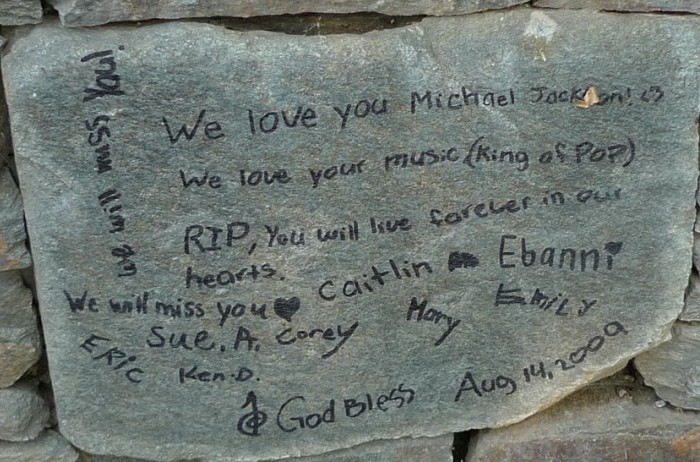 we will miss you!
We love you Michael Jackson! <3
We love your music (King of Pop)
RIP, You will live forever in our
hearts.
Caitlin Ebanni
We will miss you
Sue. A. Corey Mary Emily
Eric Ken.D.
God Bless Aug 14, 2009